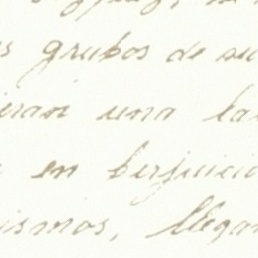 s grubos de su
ieran una la
en berjuicio
ismos, llegan